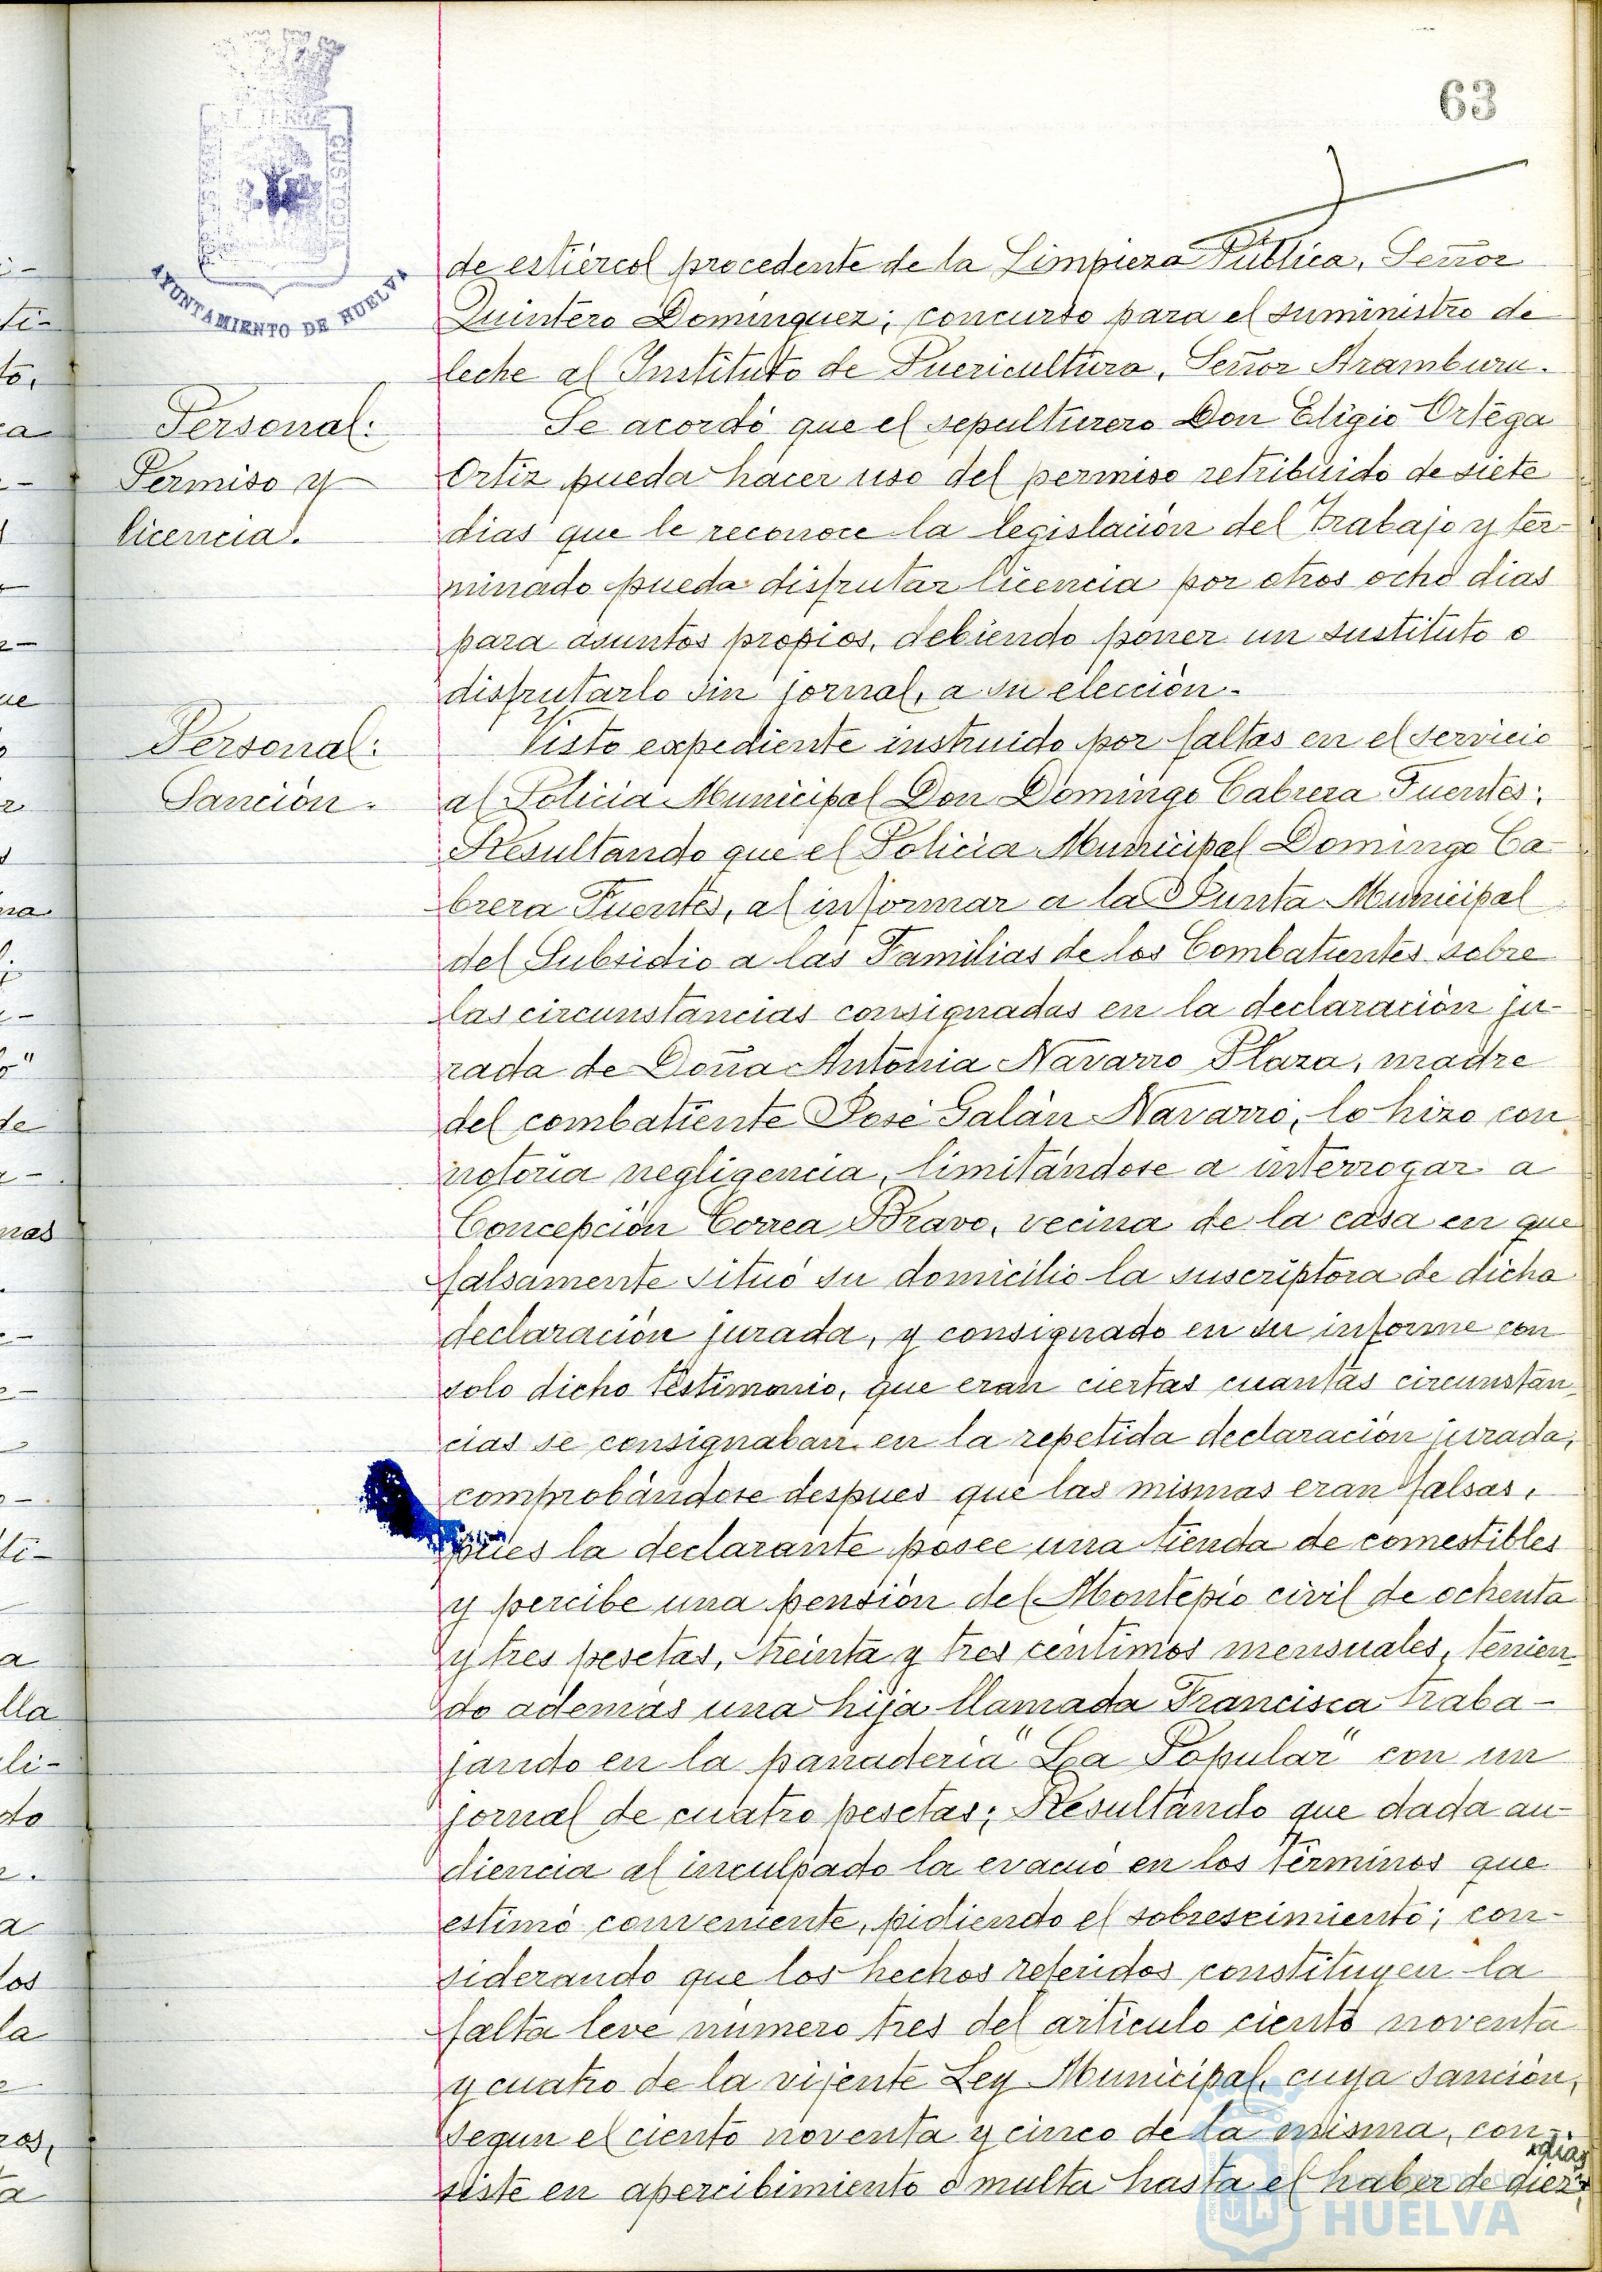 63
AYUNTAMIENTO DE HUELVA
de estiércol procedente de la Limpieza Pública, Señor
Quintero Dominguez; concurso para el suministro de
leche al Instituto de Puericultura, Señor Aramburu.
Personal:
Permiso y
licencia.
Se acordó que el sepulturero Don Eligio Ortega
Ortiz pueda hacer uso del permiso retribuido de siete
dias que le reconoce la legislación del Trabajo y ter-
minado pueda disfrutar licencia por otros ocho dias
para asuntos propios, debiendo poner un sustituto o
disfrutarlo sin jornal, a su elección.-
Personal:
Sanción.
Visto expediente instruido por faltas en el servicio
al Policia Municipal Don Domingo Cabrera Fuentes;
Resultando que el Policia Municipal Domingo Ca-
brera Fuentes, al informar a la Junta Municipal
del Subsidio a las Familias de los Combatientes sobre
las circunstancias consignadas en la declaración ju-
rada de Doña Antonia Navarro Plaza, madre
del combatiente José Galán Navarro, lo hizo con
notoria negligencia, limitándose a interrogar a
Concepción Correa Bravo, vecina de la casa en que
falsamente situó su domicilio la suscriptora de dicha
declaración jurada, y consignado en su informe con
solo dicho testimonio, que eran ciertas cuantas circunstan-
cias se consignaban en la repetida declaración jurada,
comprobándose despues que las mismas eran falsas,
pues la declarante posee una tienda de comestibles
y percibe una pensión del Montepio civil de ochenta
y tres pesetas, treinta y tres centimos mensuales, tenien-
do además una hija llamada Francisca traba-
jando en la panaderia "La Popular" con un
jornal de cuatro pesetas; Resultando que dada au-
diencia al inculpado la evacuó en los términos que
estimó conveniente, pidiendo el sobreseimiento; con-
siderando que los hechos referidos constituyen la
falta leve número tres del articulo ciento noventa
y cuatro de la vijente Ley Municipal, cuya sanción,
segun el ciento noventa y cinco de la misma, con-
siste en apercibimiento o multa hasta el haber de diez
dias
HUELVA